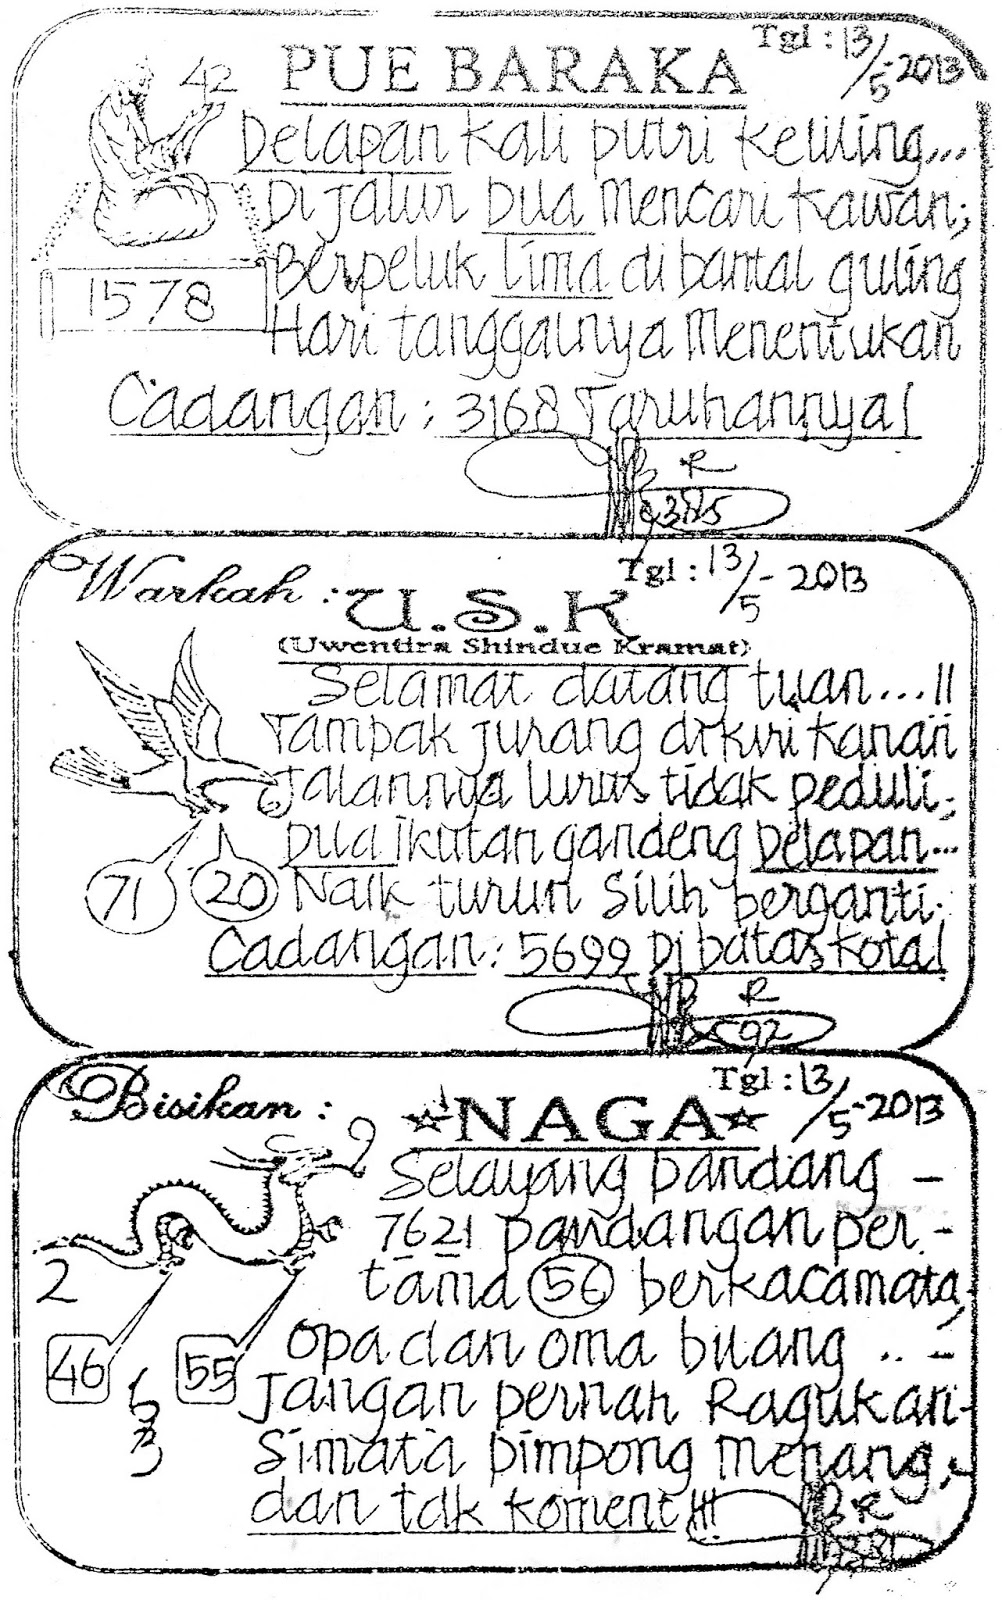 PUE BARAKA
Tgl : 13/5-2013
42
Delapan kali putri keliling...
Di jalur Dua Mencari kawan;
Berpeluk lima di bantal guling
1578
Hari tanggalnya Menentukan
Cadangan : 3168 Taruhannya!
R
Warkah : U.S.K
Tgl : 13/5-2013
(Uwentira Shindue Kramat)
Selamat datang tuan...!!
Tampak jurang di kiri kanan
Jalannya lurus tidak peduli;
Dua ikutan gandeng Delapan...
71 20
Naik turun Silih berganti.
Cadangan : 5699 Di batas kota!
R
592
Bisikan : ☆NAGA☆
Tgl : 13/5-2013
2
Selayang pandang -
7621 pandangan per -
2
tama 56 berkacamata,
Opa dan oma bilang .. -
46 55
Jangan pernah Ragukan-
Simata pimpong menang;
dan tdk koment !!!
R